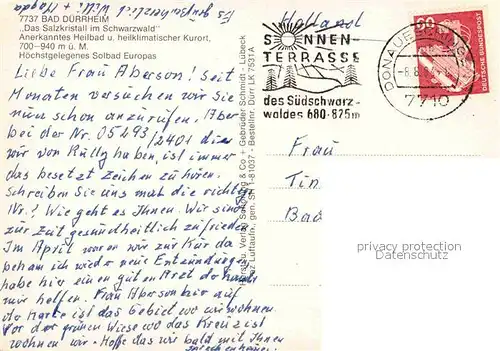 Es grüssen herzlich Willi + Magda
7737 BAD DÜRRHEIM
„Das Salzkristall im Schwarzwald"
Anerkanntes Heilbad u. heilklimatischer Kurort,
700–940 m ü. M.
Höchstgelegenes Solbad Europas
Liebe Frau Aberson! Seit
Monaten versuchen wir Sie
nun schon anzurufen. Aber
bei der Nr. 05493/2401 die
wir von Külly haben, ist immer
das besetzt Zeichen zu hören.
Schreiben Sie uns mal die richtige
Nr.! Wie geht es Ihnen. Wir sind
zur Zeit gesundheitlich zufrieden
Im April waren wir zur Kur da
bekam ich wieder neue Entzündungen
habe hier einen guten Arzt der
mir helfen. Frau Aberson hier auf
der Karte ist das Gebiet wo wir wohnen.
Vor der grünen Wiese wo das Kreuz ist
wohnen wir. Hoffe das wir bald mit Ihnen
sprechen können.
+ Gebrüder Schmidt - Lübeck
gen. SH 1-81037 - Bestellnr. Dürr LK 7931 A
Holland
SONNEN-
TERRASSE
des Südschwarz-
waldes 680-875m
DONAUESCHINGEN
-8.8.
7710
60
DEUTSCHE BUNDESPOST
Frau
Tin
Bad
privacy protection
Datenschutz